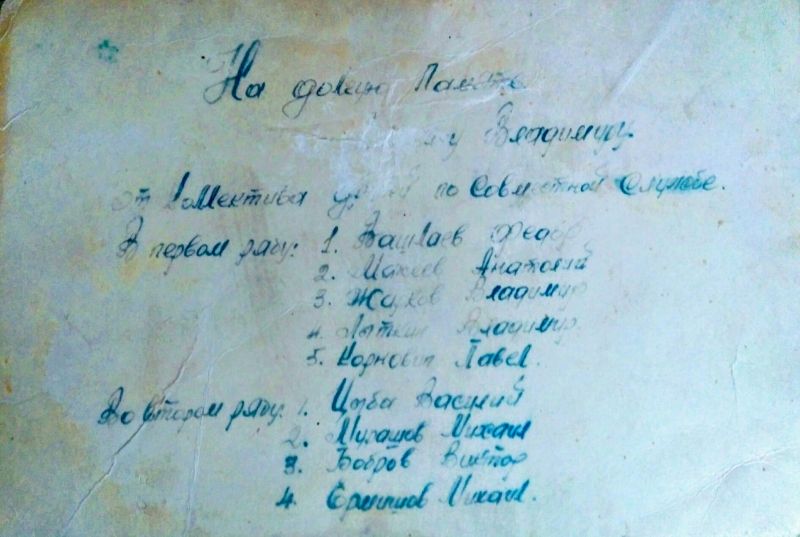 На долгую Память
Владимиру
от коллектива друзей по Совместной Службе.
В первом ряду: 1. Вашлаев Федор
2. Макеев Анатолий
3. Жуков Владимир
4. Лыткин Владимир
5. Корнович Павел.
Во втором ряду: 1. Цыба Василий
2. Мурашов Михаил
3. Бобров Виктор
4. Михаил.